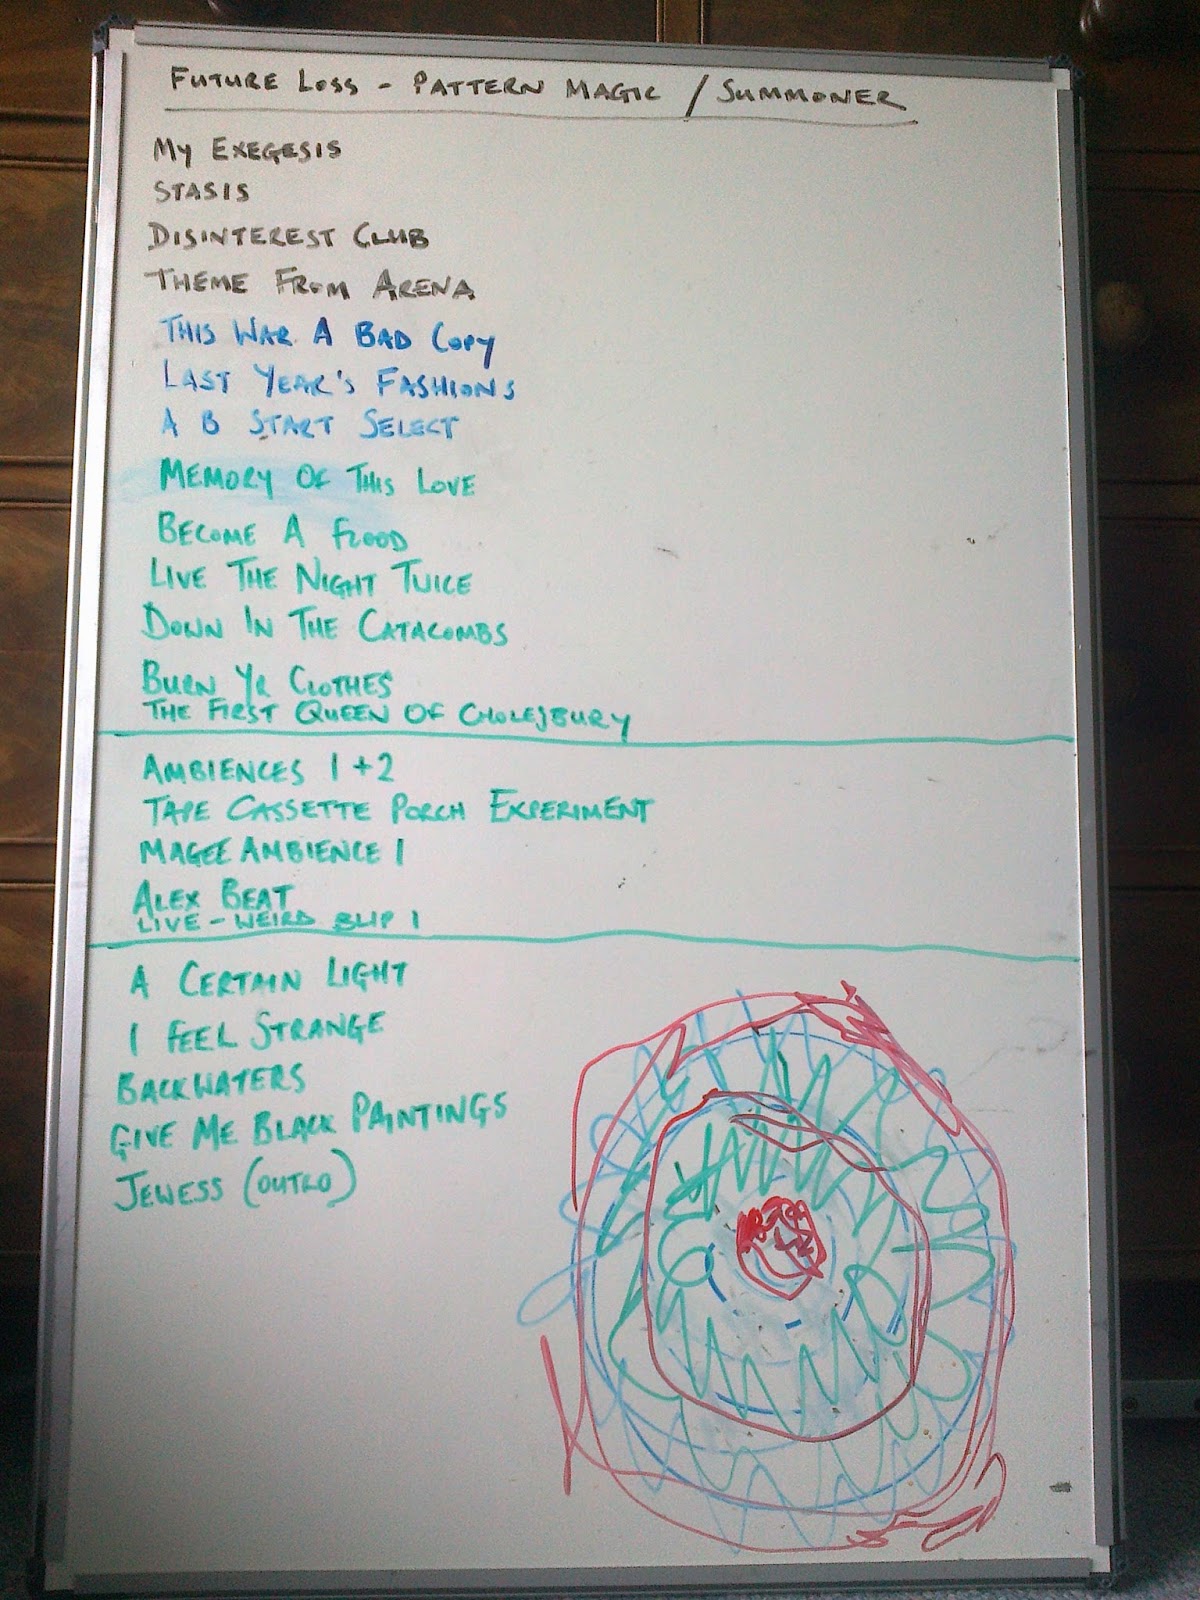 FUTURE LOSS - PATTERN MAGIC / SUMMONER
MY EXEGESIS
STASIS
DISINTEREST CLUB
THEME FROM ARENA
THIS WAR A BAD COPY
LAST YEAR'S FASHIONS
A B START SELECT
MEMORY OF THIS LOVE
BECOME A FLOOD
LIVE THE NIGHT TWICE
DOWN IN THE CATACOMBS
BURN YR CLOTHES
THE FIRST QUEEN OF CHOLESBURY
AMBIENCES 1 + 2
TAPE CASSETTE PORCH EXPERIMENT
MAGEE AMBIENCE 1
ALEX BEAT
LIVE - WEIRD BLIP 1
A CERTAIN LIGHT
I FEEL STRANGE
BACKWATERS
GIVE ME BLACK PAINTINGS
JEWESS (OUTRO)